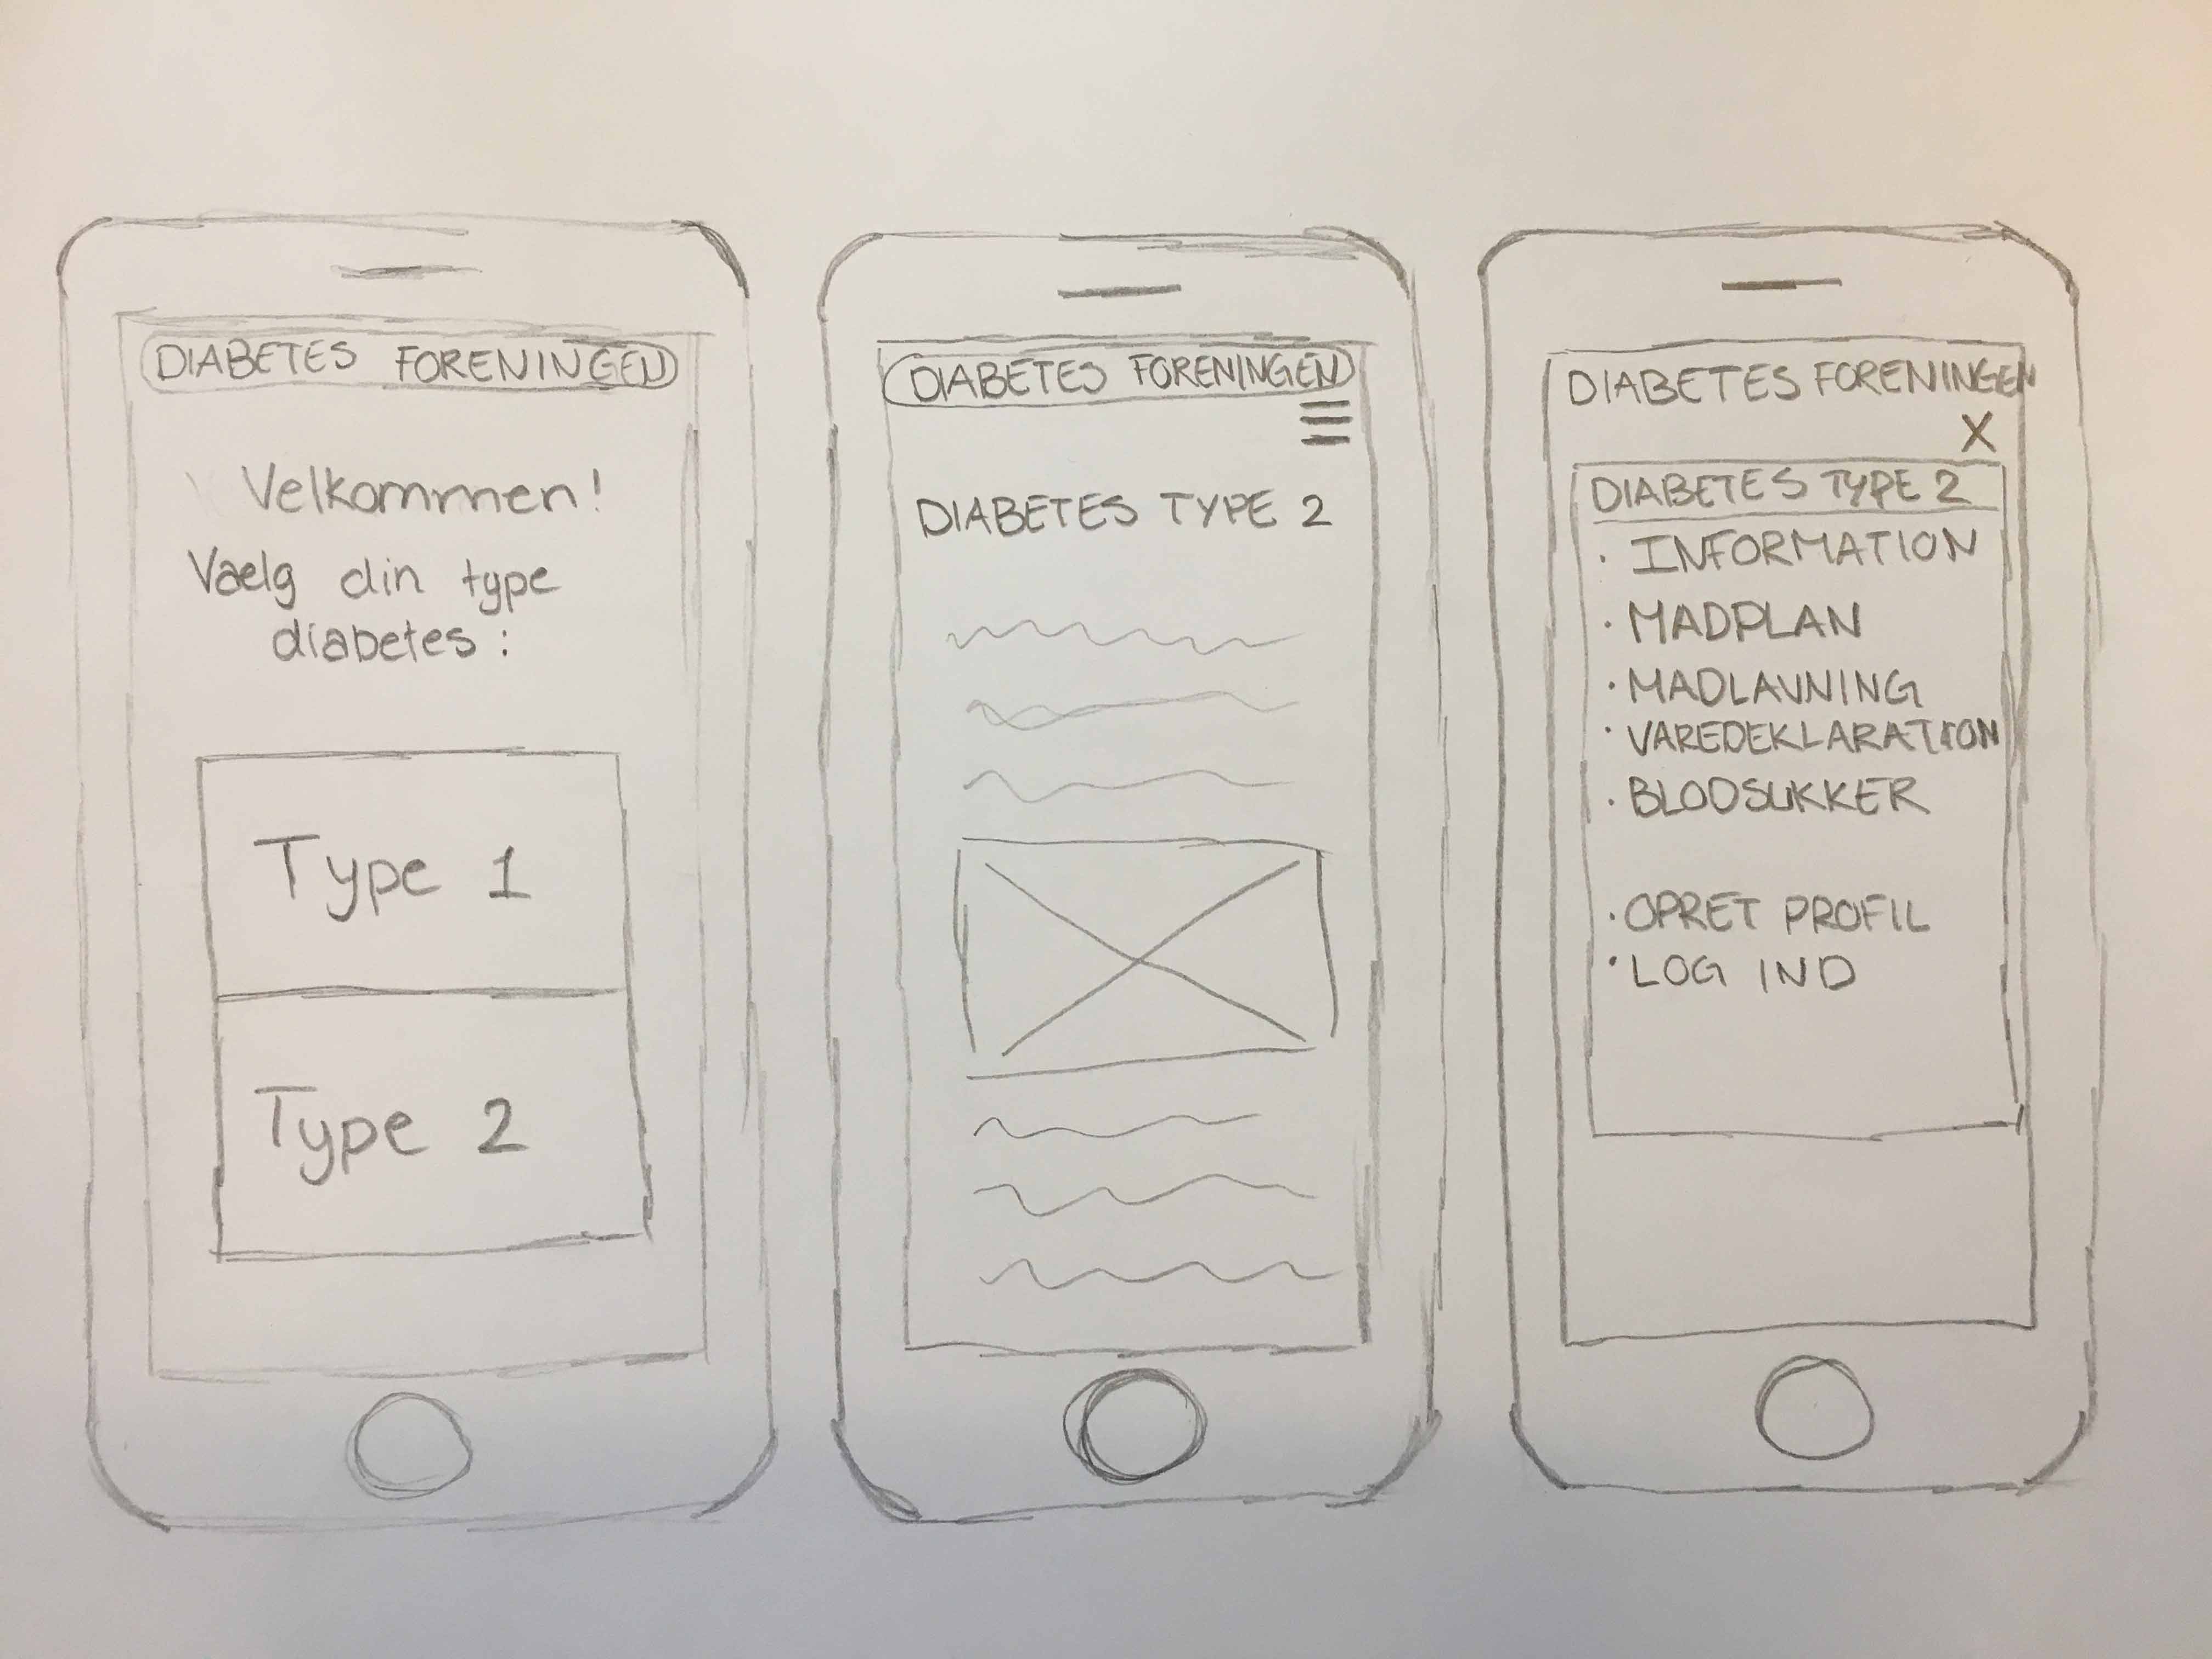 DIABETES FORENINGEN
Velkommen!
Vælg din type
diabetes:
Type 1
Type 2
DIABETES FORENINGEN
DIABETES TYPE 2
DIABETES FORENINGEN
X
DIABETES TYPE 2
· INFORMATION
· MADPLAN
· MADLAVNING
· VAREDEKLARATION
· BLODSUKKER
· OPRET PROFIL
· LOG IND